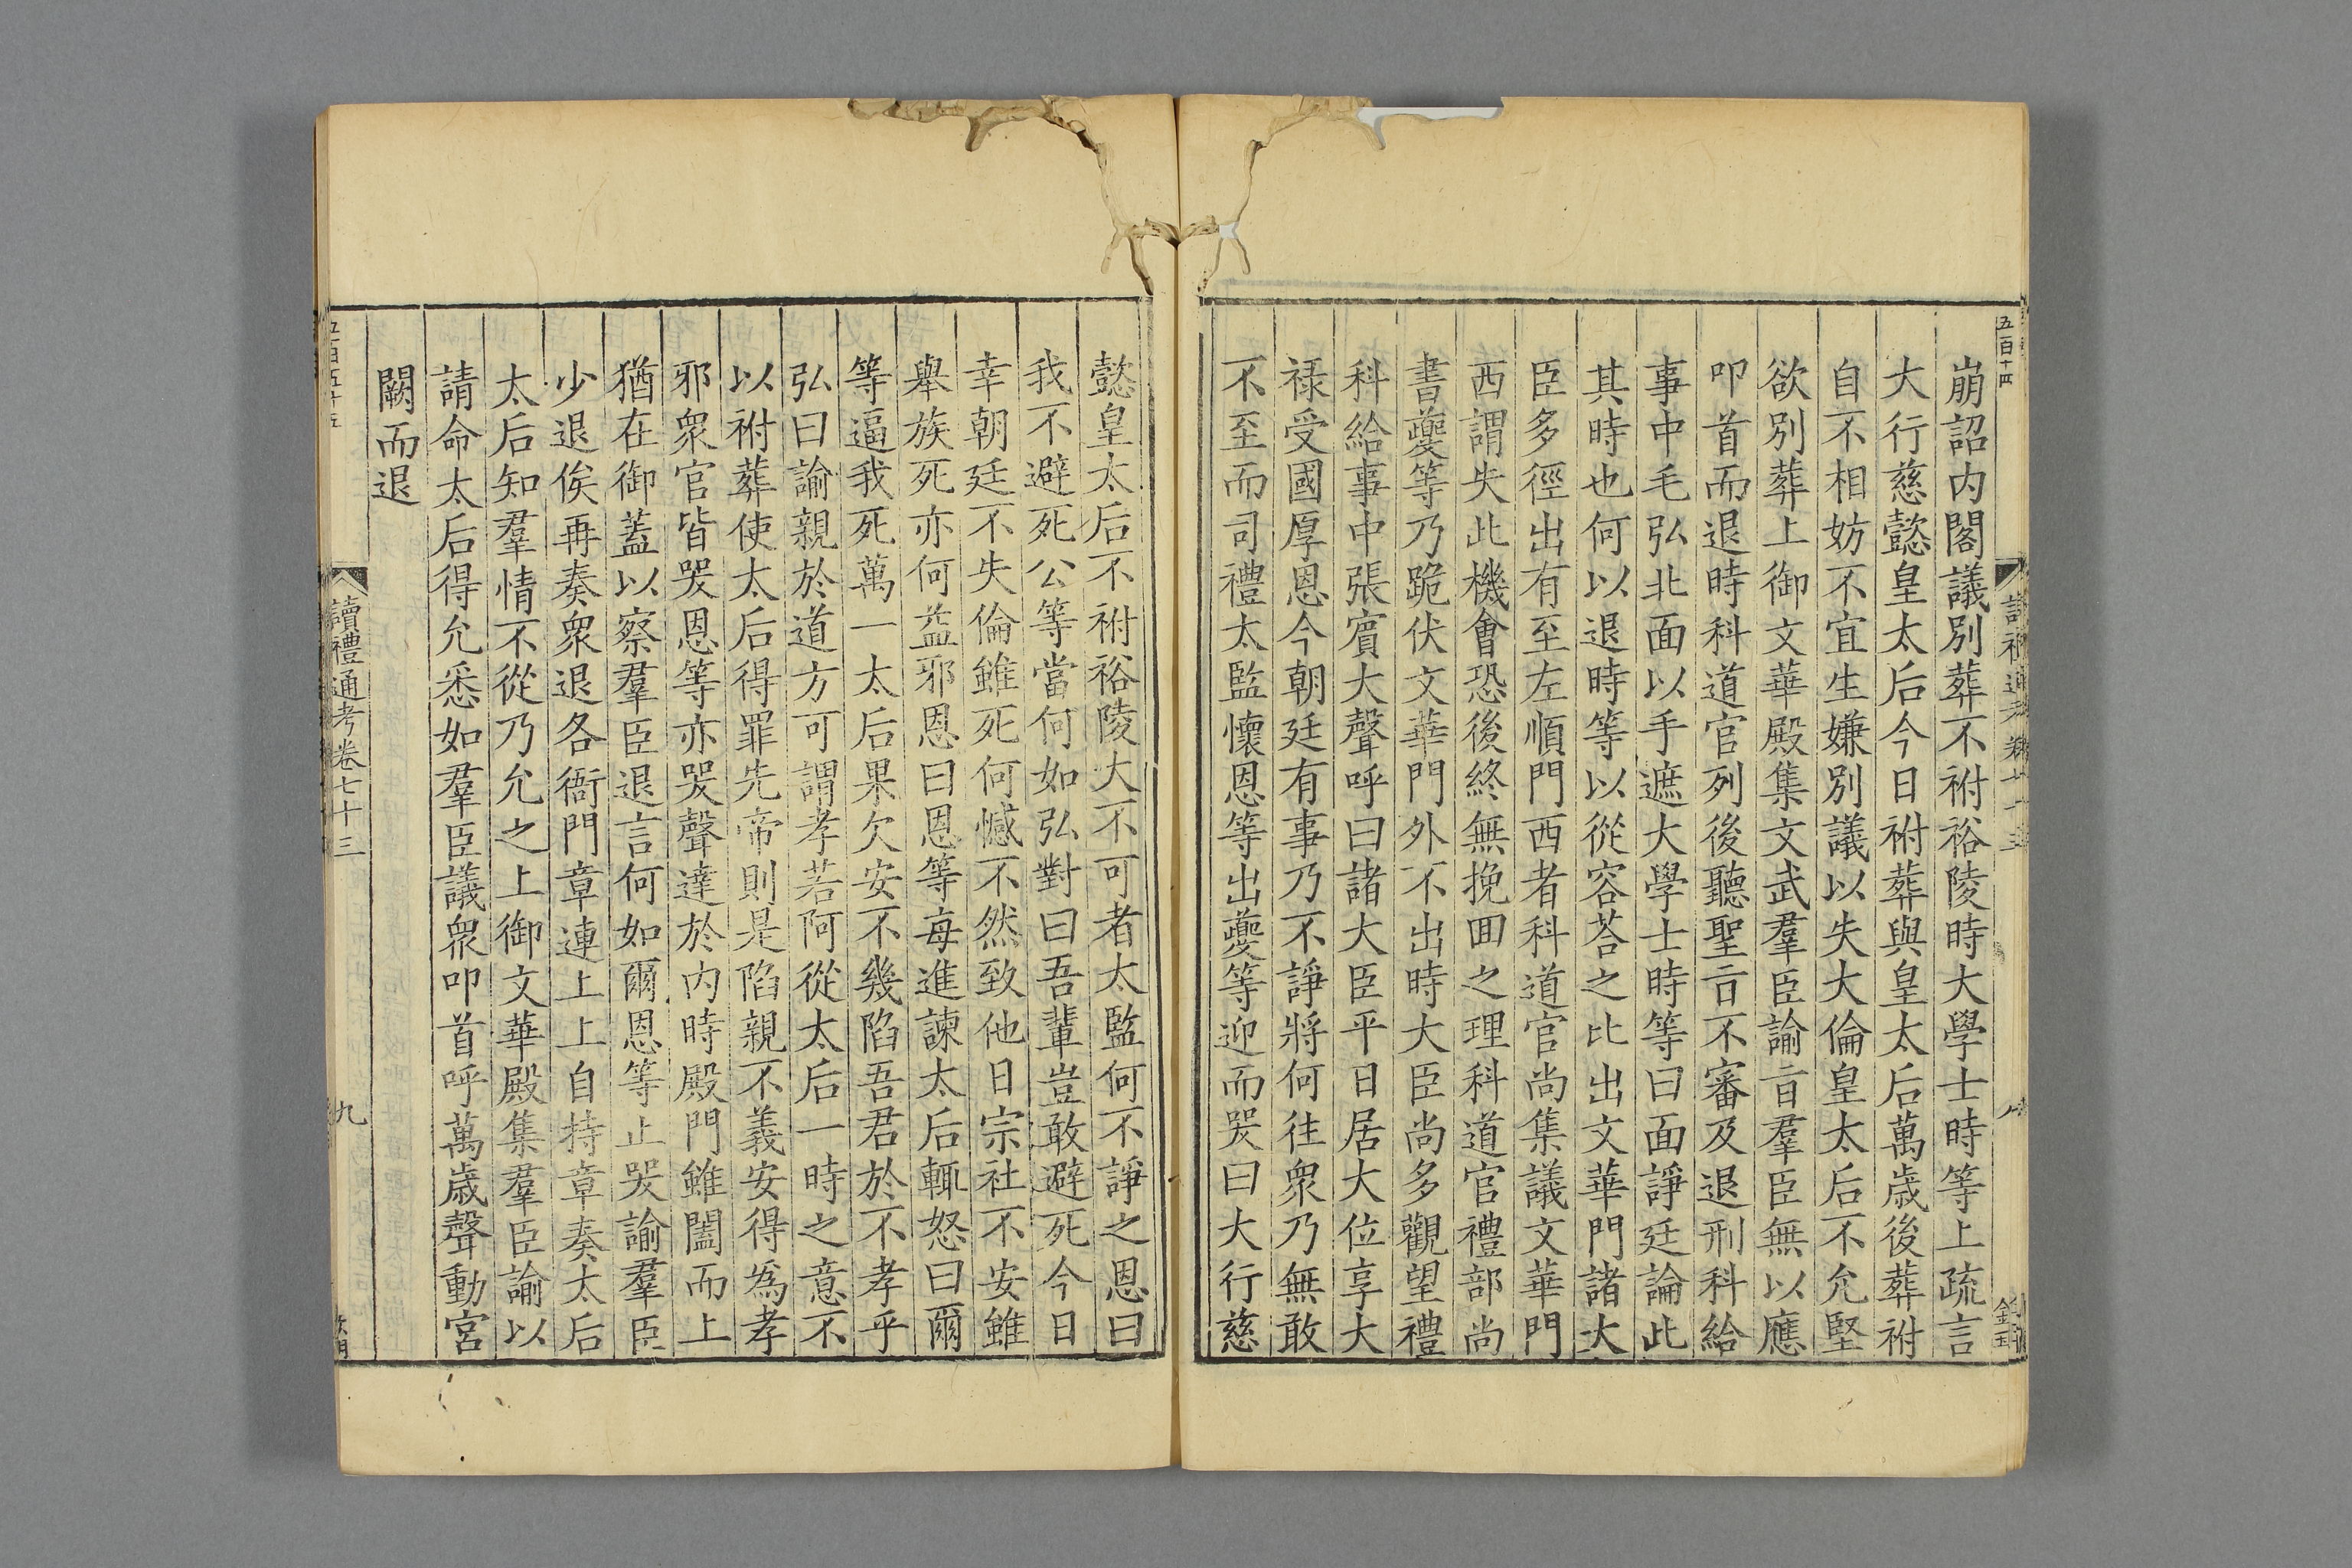 崩詔内閣議別葬不祔裕陵時大學士時等上疏言
大行慈懿皇太后今日祔葬與皇太后萬歲後葬祔
自不相妨不宜生嫌別議以失大倫皇太后不允堅
欲別葬上御文華殿集文武羣臣諭㫖羣臣無以應
叩首而退時科道官列後聽聖㫖不審及退刑科給
事中毛弘北面以手遮大學士時等曰面諍廷論此
其時也何以退時等以從容荅之比出文華門諸大
臣多徑出有至左順門西者科道官尚集議文華門
西謂失此機會恐後終無挽囬之理科道官禮部尚
書夔等乃跪伏文華門外不出時大臣尚多觀望禮
科給事中張賓大聲呼曰諸大臣平日居大位享大
禄受國厚恩今朝廷有事乃不諍將何往衆乃無敢
不至而司禮太監懷恩等出夔等迎而哭曰大行慈
懿皇太后不祔裕陵大不可者太監何不諍之恩曰
我不避死公等當何如弘對曰吾輩豈敢避死今日
幸朝廷不失倫雖死何憾不然致他日宗社不安雖
舉族死亦何益邪恩曰恩等每進諫太后輒怒曰爾
等逼我死萬一太后果欠安不幾陷吾君於不孝乎
弘曰諭親於道方可謂孝若阿從太后一時之意不
以祔葬使太后得罪先帝則是陷親不義安得為孝
邪衆官皆哭恩等亦哭聲達於内時殿門雖闔而上
猶在御蓋以察羣臣退言何如爾恩等止哭諭羣臣
少退俟再奏衆退各衙門章連上上自持章奏太后
太后知羣情不從乃允之上御文華殿集羣臣諭以
請命太后得允悉如羣臣議衆叩首呼萬歲聲動宮
闕而退
讀禮通考卷七十三
九